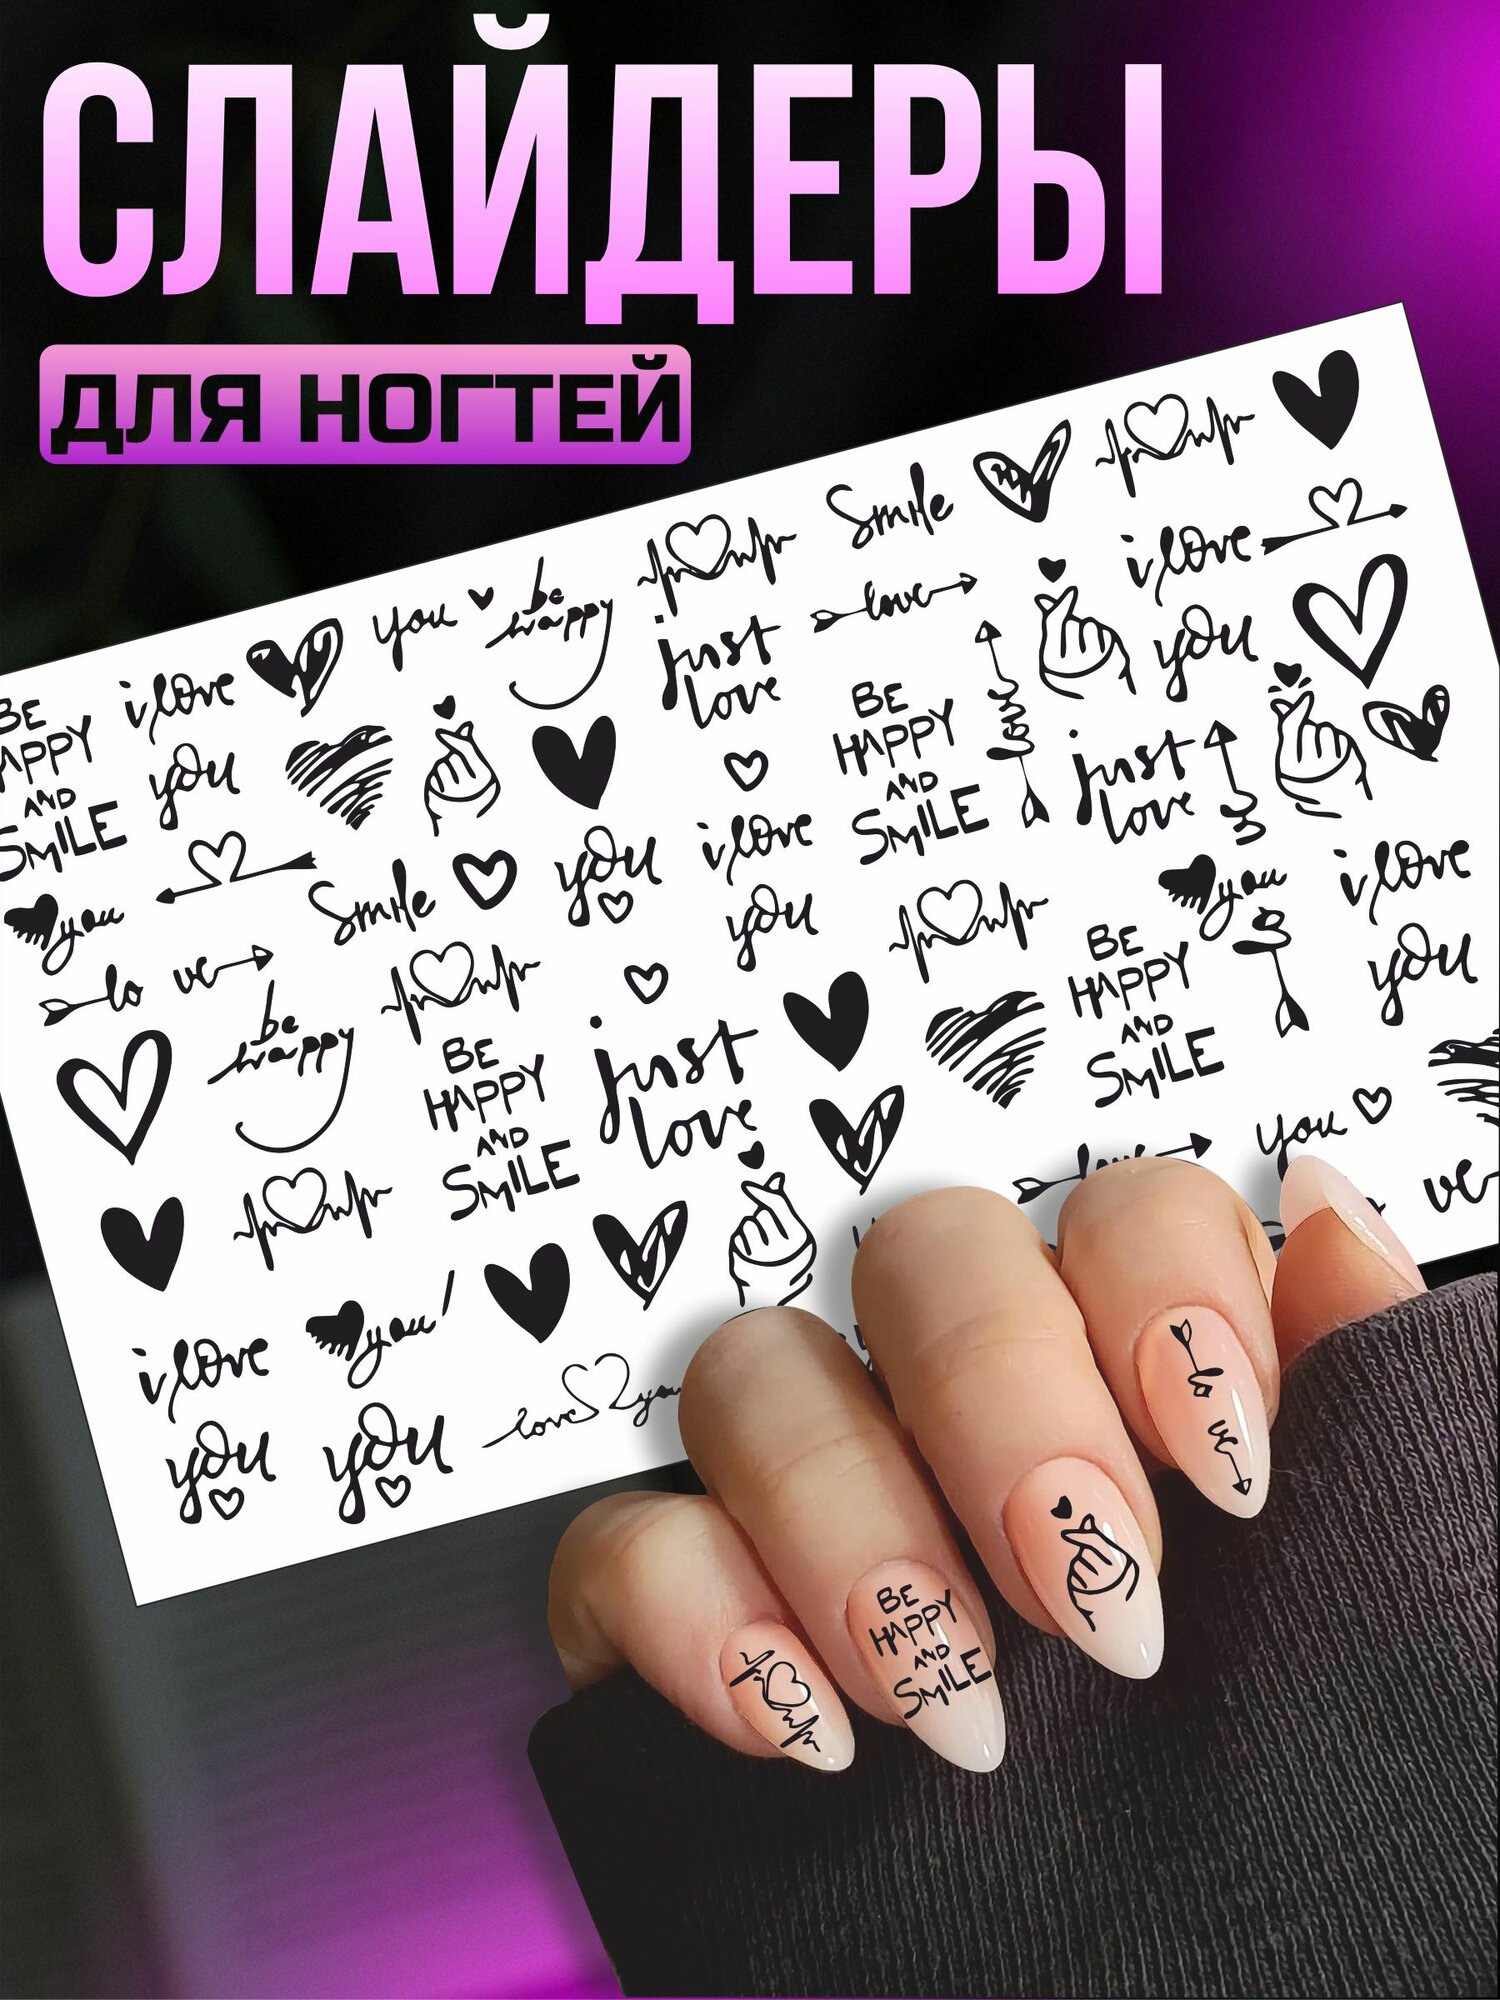 СЛАЙДЕРЫ
ДЛЯ НОГТЕЙ
Smile
i love
you
be
happy
you
just
love
love
i love
you
BE
HAPPY
AND
SMILE
BE
HAPPY
AND
SMILE
love
just
love
you
Smile
you
i love
you
you
i love
you
lo ve
be
happy
BE
HAPPY
AND
SMILE
just
love
BE
HAPPY
AND
SMILE
love
you
ve
i love
you
you
you
love you
lo ve
BE
HAPPY
AND
SMILE